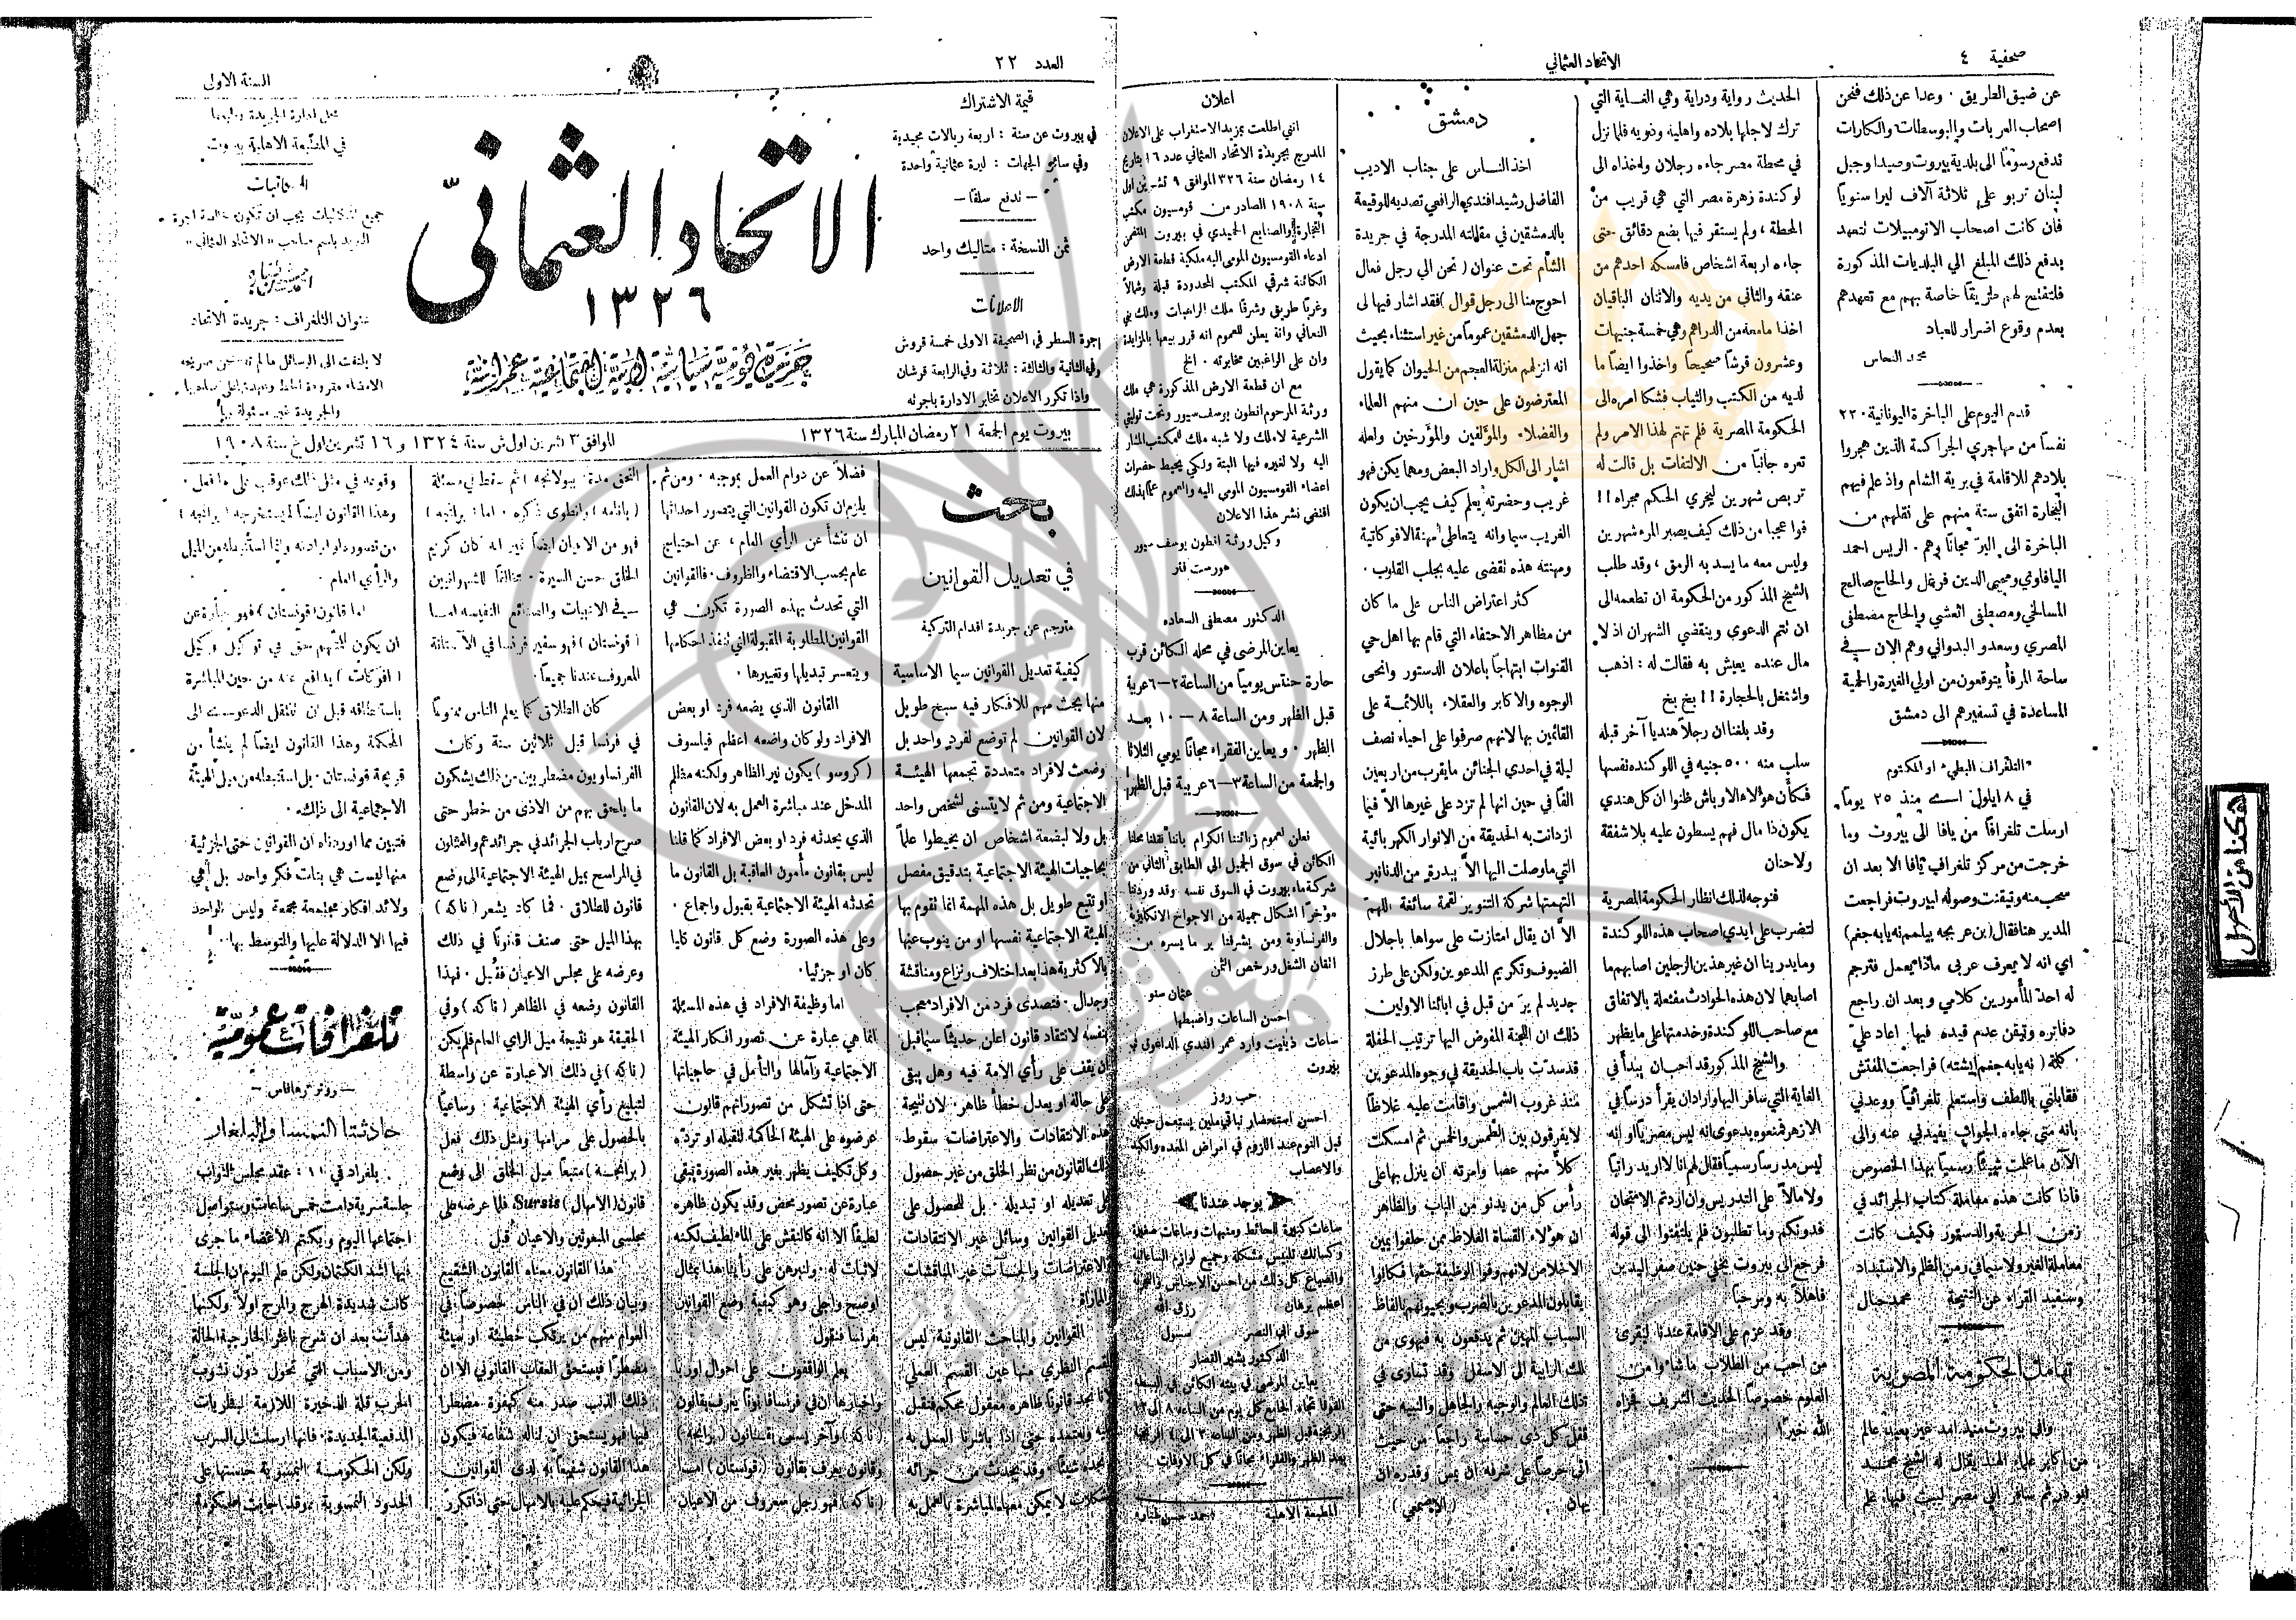 صحيفة ٤
الاتحاد العثماني
عن ضيق الطريق ٠ وعدا عن ذلك فنحن
اصحاب العربات والبوسطات والكارات
ندفع رسومًا الى بلدية بيروت وصيدا وجبل
لبنان تربو على ثلاثة آلاف ليرا سنويًا
فان كانت اصحاب الاتومبيلات تتعهد
بدفع ذلك المبلغ الى البلديات المذكورة
فلتفتح لهم طريقًا خاصة بهم مع تعهدهم
بعدم وقوع اضرار للعباد
محمد النحاس
قدم اليوم على الباخرة اليونانية ٢٢٠
نفسًا من مهاجري الجراكسة الذين هجروا
بلادهم للاقامة في برية الشام واذ علم فيهم
البحارة اتفق ستة منهم على نقلهم من
الباخرة الى البر مجانًا وهم ٠ الريس احمد
اليافاوي ومحيي الدين قرنفل والحاج صالح
المسالخي ومصطفى العشي والحاج مصطفى
المصري وسعدو البدواني وهم الان في
ساحة المرفأ يتوقعون من اولي الغيرة والحمية
المساعدة في تسفيرهم الى دمشق
"التلغراف البطي" او المكتوم
في ٨ ايلول اي منذ ٢٥ يومًا
ارسلت تلغرافًا من يافا الى بيروت وما
خرجت من مركز تلغراف يافا الا بعد ان
سحب منه وتيقنت وصوله لبيروت فراجعت
المدير هنا فقال (بن عربجه بيلمم نه يابه جغم)
اي انه لا يعرف عربي ماذا يعمل فترجم
له احد المأمورين كلامي و بعد ان راجع
دفاتره وتيقن عدم قيده فيها اعاد عليّ
كلمة (نه يابه جغم ايشته) فراجعت المفتش
فقابلني باللطف واستعلم تلغرافيًا ووعدني
بانه متى جاءه الجواب يفيدني عنه والى
الآن ما علمت شيئًا رسميًا بهذا الخصوص
فاذا كانت هذه معاملة كتاب الجرائد في
زمن الحرية والدستور فكيف كانت
معاملة الغير ولا سيما في زمن الظلم والاستبداد
وسنفيد القراء عن النتيجة محمد جال
تهامل الحكومة المصرية
وافى بيروت منذ امد غير بعيد عالم
من اكابر علماء الهند يقال له الشيخ محمد
ابو ذر ثم سافر الى مصر ليبث فيها علم
الحديث رواية ودراية وهي الغاية التي
ترك لاجلها بلاده واهليه وذويه فلما نزل
في محطة مصر جاءه رجلان واخذاه الى
لوكندة زهرة مصر التي هي قريب من
المحطة ، ولم يستقر فيها بضع دقائق حتى
جاءه اربعة اشخاص فامسكه احدهم من
عنقه والثاني من يديه والاثنان الباقيان
اخذا ما معه من الدراهم وهي خمسة جنيهات
وعشرون قرشًا صحيحًا واخذوا ايضًا ما
لديه من الكتب والثياب فشكا امره الى
الحكومة المصرية فلم تهتم لهذا الامر ولم
تعره جانبًا من الالتفات بل قالت له
تربص شهرين ليجري الحكم مجراه !!
فوا عجبا من ذلك كيف يصبر المرء شهرين
وليس معه ما يسد به الرمق ، وقد طلب
الشيخ المذكور من الحكومة ان تطعمه الى
ان تتم الدعوى وينقضي الشهران اذ لا
مال عنده يعيش به فقالت له : اذهب
واشتغل بالحجارة !! بخ بخ
وقد بلغنا ان رجلًا هنديًا آخر قبله
سلب منه ٥٠٠ جنيه في اللوكنده نفسها
فكأن هولاء الاوباش ظنوا ان كل هندي
يكون ذا مال فهم يسطون عليه بلا شفقة
ولا حنان
فنوجه لذلك انظار الحكومة المصرية
لتضرب على ايدي اصحاب هذه اللوكندة
وما يدرينا ان غير هذين الرجلين اصابهم ما
اصابهما لان هذه الحوادث مفتعلة بالاتفاق
مع صاحب اللوكندة وخدمتها على ما يظهر
والشيخ المذكور قد احب ان يبدأ في
الغاية التي سافر اليها واراد ان يقرأ درسًا في
الازهر فمنعوه بدعوى انه ليس مصريًا او انه
ليس مدرسًا رسميًا فقال لهم انا لا اريد راتبًا
ولا مالًا على التدريس وان اردتم الامتحان
فدونكم وما تطلبون فلم يلتفتوا الى قوله
فرجع الى بيروت بخفي حنين صفر اليدين
فاهلًا به ومرحبًا
وقد عزم على الاقامة عندنا ليقرئ
من احب من الطلاب ما شاءوا من
العلوم خصوصًا الحديث الشريف فجزاه
الله خيرًا
دمشق
اخذ الناس على جناب الاديب
الفاضل رشيد افندي الرافعي تصديه للوقيعة
بالدمشقيين في مقالته المدرجة في جريدة
الشام تحت عنوان (نحن الى رجل فعال
احوج منا الى رجل قوال) فقد اشار فيها الى
جهل الدمشقيين عمومًا من غير استثناء بحيث
انه انزلهم منزلة العجم من الحيوان كما يقول
المعترضون على حين ان منهم العلماء
والفضلاء والمؤلفين والمؤرخين ولعله
اشار الى الكل واراد البعض ومهما يكن فهو
غريب وحضرته يعلم كيف يجب ان يكون
الغريب سيما وانه يتعاطى مهنة الافوكاتية
ومهنته هذه تقضي عليه بجلب القلوب ٠
كثر اعتراض الناس على ما كان
من مظاهر الاحتفاء التي قام بها اهل حي
القنوات ابتهاجًا باعلان الدستور وانحى
الوجوه والاكابر والعقلاء باللائمة على
القائمين بها لانهم صرفوا على احياء نصف
ليلة في احدى الجنائن ما يقرب من اربعين
الفًا في حين انها لم تزد على غيرها الا فيما
ازدانت به الحديقة من الانوار الكهربائية
التي ما وصلت اليها الا ببدرة من الدنانير
التهمتها شركة التنوير لقمة سائغة اللهم
الا ان يقال امتازت على سواها باجلال
الضيوف وتكريم المدعوين ولكن على طرز
جديد لم يرَ من قبل في ابائنا الاولين
ذلك ان اللجنة المفوض اليها ترتيب الحفلة
قد سدت باب الحديقة في وجوه المدعوين
منذ غروب الشمس واقامت عليه غلاظًا
لا يفرقون بين الطمس والخمس ثم امسكت
كلًا منهم عصا وامرته ان ينزل بها على
رأس كل من يدنو من الباب والظاهر
ان هولاء القساة الغلاظ ممن حلفوا يمين
الاخلاص لانهم وفوا الوظيفة حقها فكانوا
يقابلون المدعوين بالضرب ويحيونهم بالفاظ
السباب المهين ثم يدفعون به فيهوى من
تلك الرابية الى الاسفل وقد تساوى في
ذلك العالم والوجيه والجاهل والنبيه حتى
قفل كل ذي حساسة راجعًا من حيث
اتى حرصًا على شرفه ان يمس وقدره ان
يهان (الاصمعي)
اعلان
انني اطلعت بمزيد الاستغراب على الاعلان
المدرج بجريدة الاتحاد العثماني عدد ١٦ بتاريخ
١٤ رمضان سنة ٣٢٦ الموافق ٩ تشرين اول
سنة ١٩٠٨ الصادر من قومسيون مكتب
التجارة والصنايع الحميدي في بيروت المتضمن
ادعاء القومسيون المومى اليه ملكية قطعة الارض
الكائنة شرقي المكتب المحدودة قبلة وشمالًا
وغربًا طريق وشرقًا ملك الراهبات وملك بني
النعماني وانه يعلن للعموم انه قرر بيعها بالمزايدة
وان على الراغبين مخابرته ٠ الخ
مع ان قطعة الارض المذكورة هي ملك
ورثة المرحوم انطون يوسف سيور وتحت توليتي
الشرعية لا ملك ولا شبه ملك للمكتب المشار
اليه ولا لغيره فيها البتة ولكي يحيط حضرات
اعضاء القومسيون المومى اليه والعموم علمًا بذلك
اقتضى نشر هذا الاعلان
وكيل ورثة انطون يوسف سيور
هورست فلر
الدكتور مصطفى السعاده
يعاين المرضى في محله الكائن قرب
حارة حنتس يوميًا من الساعة ٢–٦ عربية
قبل الظهر ومن الساعة ٨–١٠ بعد
الظهر ٠ ويعاين الفقراء مجانًا يومي الثلاثا
والجمعة من الساعة ٣–٦ عربية قبل الظهر
نعلن لعموم زبائننا الكرام باننا نقلنا محلنا
الكائن في سوق الجميل الى الطابق الثاني من
شركة ماء بيروت في السوق نفسه وقد وردتنا
مؤخرًا اشكال جميلة من الاجواخ الانكليزية
والفرنساوية ومن يشرفنا ير ما يسره من
اتقان الشغل ورخص الثمن
عثمان ستو
احسن الساعات واضبطها
ساعات ذينيت وارد عمر افندي الداعوق في
بيروت
حب ردز
احسن استحضار نباتي ملين يستعمل حبتان
قبل النوم عند اللزوم في امراض المعده والكبد
والاعصاب
يوجد عندنا
ساعات كبيرة للحائط ومنبهات وساعات صغيرة
اعظم برهان رزق الله
سوق ابي النصر سنبول
الدكتور بشير القصار
يعاين المرضى في بيته الكائن في البسطة
المطبعة الاهلية احمد حسن طباره
العدد ٢٢
السنة الاولى
قيمة الاشتراك
في بيروت عن سنة : اربعة ريالات مجيدية
وفي سائر الجهات : ليرة عثمانية واحدة
— تدفع سلفًا —
ثمن النسخة : متاليك واحد
الاعلانات
اجرة السطر في الصحيفة الاولى خمسة قروش
وفي الثانية والثالثة : ثلاثة وفي الرابعة قرشان
واذا تكرر الاعلان تخابر الادارة باجرته
الاتحاد العثماني
١٣٢٦
جريدة يومية سياسية ادبية اقتصادية عمرانية
محل ادارة الجريدة وطبعها
في المطبعة الاهلية بيروت
المكاتبات
جميع المكاتبات يجب ان تكون خالصة اجرة
البريد باسم صاحب "الاتحاد العثماني"
احمد حسن طباره
عنوان التلغراف : جريدة الاتحاد
لا يلتفت الى الرسائل ما لم تكن صريحة
والجريدة غير مسئولة
بيروت يوم الجمعة ٢١ رمضان المبارك سنة ١٣٢٦
الموافق ٣ تشرين اول ش سنة ١٣٢٤ و ١٦ تشرين اول غ سنة ١٩٠٨
بحث
في تعديل القوانين
مترجم عن جريدة اقدام التركية
كيفية تعديل القوانين سيما الاساسية
منها بحث مهم للافكار فيه سبح طويل
لان القوانين لم توضع لفرد واحد بل
وضعت لافراد متعددة تجمعها الهيئة
الاجتماعية ومن ثم لا يتسنى لشخص واحد
بل ولا لبضعة اشخاص ان يحيطوا علمًا
بحاجيات الهيئة الاجتماعية بتدقيق مفصل
او تتبع طويل بل هذه المهمة انما تقوم بها
الهيئة الاجتماعية نفسها او من ينوب عنها
بالاكثرية هذا بعد اختلاف ونزاع ومناقشة
وجدال ٠ فتصدى فرد من الافراد معجب
بنفسه لانتقاد قانون اعلن حديثًا سيما قبل
ان يقف على رأي الامة فيه وهل يبقى
على حاله او يعدل خطأ ظاهر ٠ لان نتيجة
هذه الانتقادات والاعتراضات سقوط
ذلك القانون من نظر الخلق من غير حصول
على تعديله او تبديله ٠ بل للحصول على
تعديل القوانين وسائل غير الانتقادات
والاعتراضات والجلسات غير المناقشات
القوانين والمباحث القانونية ليس
القسم النظري منها عين القسم العملي
لانا نجد قانونًا ظاهره معقول محكم فنقبل
به ونعتمده حتى اذا باشرنا العمل به
نجده شيئًا ٠ وقد يحدث من جرائه
مشكلات لا يمكن معها المباشرة بالعمل به
فضلًا عن دوام العمل بموجبه ٠ ومن ثم
يلزم ان تكون القوانين التي يتصور احداثها
ان تنشأ عن الرأي العام ، عن احتياج
عام بحسب الاقتضاء والظروف ٠ فالقوانين
التي تحدث بهذه الصورة تكون هي
القوانين المطلوبة المقبولة التي تنفذ احكامها
ويتعسر تبديلها وتغييرها ٠
القانون الذي يضعه فرد او بعض
الافراد ولو كان واضعه اعظم فيلسوف
(كروسو) يكون نير الظاهر ولكنه مظلم
المدخل عند مباشرة العمل به لان القانون
الذي يحدثه فرد او بعض الافراد كما قلنا
ليس بقانون مأمون العاقبة بل القانون ما
تحدثه الهيئة الاجتماعية بقبول واجماع ٠
وعلى هذه الصورة وضع كل قانون كليا
كان او جزئيا ٠
اما وظيفة الافراد في هذه المسئلة
انما هي عبارة عن تصور افكار الهيئة
الاجتماعية وآمالها والتأمل في حاجياتها
حتى اذا تشكل من تصوراتهم قانون
عرضوه على الهيئة الحاكمة لتقبله او ترده
وكل تكليف يظهر بغير هذه الصورة يبقى
عبارة عن تصور محض وقد يكون ظاهره
لطيفًا الا انه كالنقش على الماء لطيف لكنه
لا ثبات له ٠ ولنبرهن على رأينا هذا بمثال
اوضح واجلى وهو كيفية وضع القوانين
بفرنسا فنقول
يعلم الواقفون على احوال اوربا
واخبارها ان في فرنسا قانونًا يعرف بقانون
(ناكه) وآخر يسمى بقانون (برانجه)
وقانون يعرف بقانون (قونستان) اما
(ناكه) فهو رجل معروف من الاعيان
التحق مدة ببولانجه ثم سقط في مسئلة
(بانامه) وانطوى ذكره ٠ اما (برانجه)
فهو من الاعيان ايضًا غير انه كان كريم
الخلق حسن السيرة ٠ مخالفًا للشهوانيين
في الادبيات والصنائع النفيسه اما
(قونستان) فهو سفير فرنسا في الآستانة
المعروف عندنا جميعًا ٠
كان الطلاق كما يعلم الناس ممنوعًا
في فرنسا قبل ثلاثين سنة وكان
الفرنساويون مضطربين من ذلك يشكون
ما يلحق بهم من الاذى من خطر حتى
صرح ارباب الجرائد في جرائدهم والممثلون
في المراسح بميل الهيئة الاجتماعية الى وضع
قانون للطلاق ٠ فما كاد يشعر (ناكه)
بهذا الميل حتى صنف قانونًا في ذلك
وعرضه على مجلس الاعيان فقبل ٠ فهذا
القانون وضعه في الظاهر (ناكه) وفي
الحقيقة هو نتيجة ميل الراي العام فلم يكن
(ناكه) في ذلك الا عبارة عن واسطة
لتبليغ رأي الهيئة الاجتماعية ٠ وساعيًا
بالحصول على مرامها ومثل ذلك فعل
(برانجه) متبعًا ميل الخلق الى وضع
قانون (الامهال) Sursis فلما عرضه على
مجلسي المبعوثين والاعيان قبل
هذا القانون معناه القانون الشفيع
وبيان ذلك ان في الناس خصوصًا في
العوام منهم من يرتكب خطيئة او سيئة
مضطرًا فيستحق العقاب القانوني الا ان
ذلك الذنب صدر منه كهفوة مضطرا
فيها فهو يستحق ان تناله شفاعة فيكون
هذا القانون شفيعًا له لدى القوانين
الجزائية فيحكم عليه بالامهال حتى اذا تكرر
وقوعه في مثل ذلك عوقب على ما فعل ٠
وهذا القانون ايضًا لم يستخرجه (برانجه)
من تصوره او ارادته وانما استنبطه من الميل
والرأي العام ٠
اما قانون (قونستان) فهو عبارة عن
ان يكون للمتهم حق في توكيل وكيل
(افوكات) يدافع عنه من حين المباشرة
باستنطاقه قبل ان تنتقل الدعوى الى
المحكمة وهذا القانون ايضًا لم ينشأ من
قريحة قونستان ٠ بل استنبطه من ميل الهيئة
الاجتماعية الى ذلك ٠
فتبين مما اوردناه ان القوانين حتى الجزئية
منها ليست هي بنات فكر واحد بل هي
ولائد افكار مجتمعة مجمعة وليس للواحد
فيها الا الدلالة عليها والتوسط بها ٠
تلغرافات عمومية
— روتر وهافاس —
حادثتا النمسا والبلغار
بلغراد في ١١ : عقد مجلس النواب
جلسة سرية دامت خمس ساعات وستواصل
اجتماعها اليوم ويكتم الاعضاء ما جرى
فيها اشد الكتمان ولكن علم اليوم ان الجلسة
كانت شديدة الهرج والمرج اولًا ولكنها
هدأت بعد ان شرح ناظر الخارجية الحالة
ومن الاسباب التي تحول دون نشوب
الحرب قلة الذخيرة اللازمة لبطريات
المدفعية الجديدة ٠ فانها ارسلت الى السرب
ولكن الحكومة النمسوية حبستها على
الحدود النمسوية ٠ وقد اجابت الحكومة
هكذا في الأصل